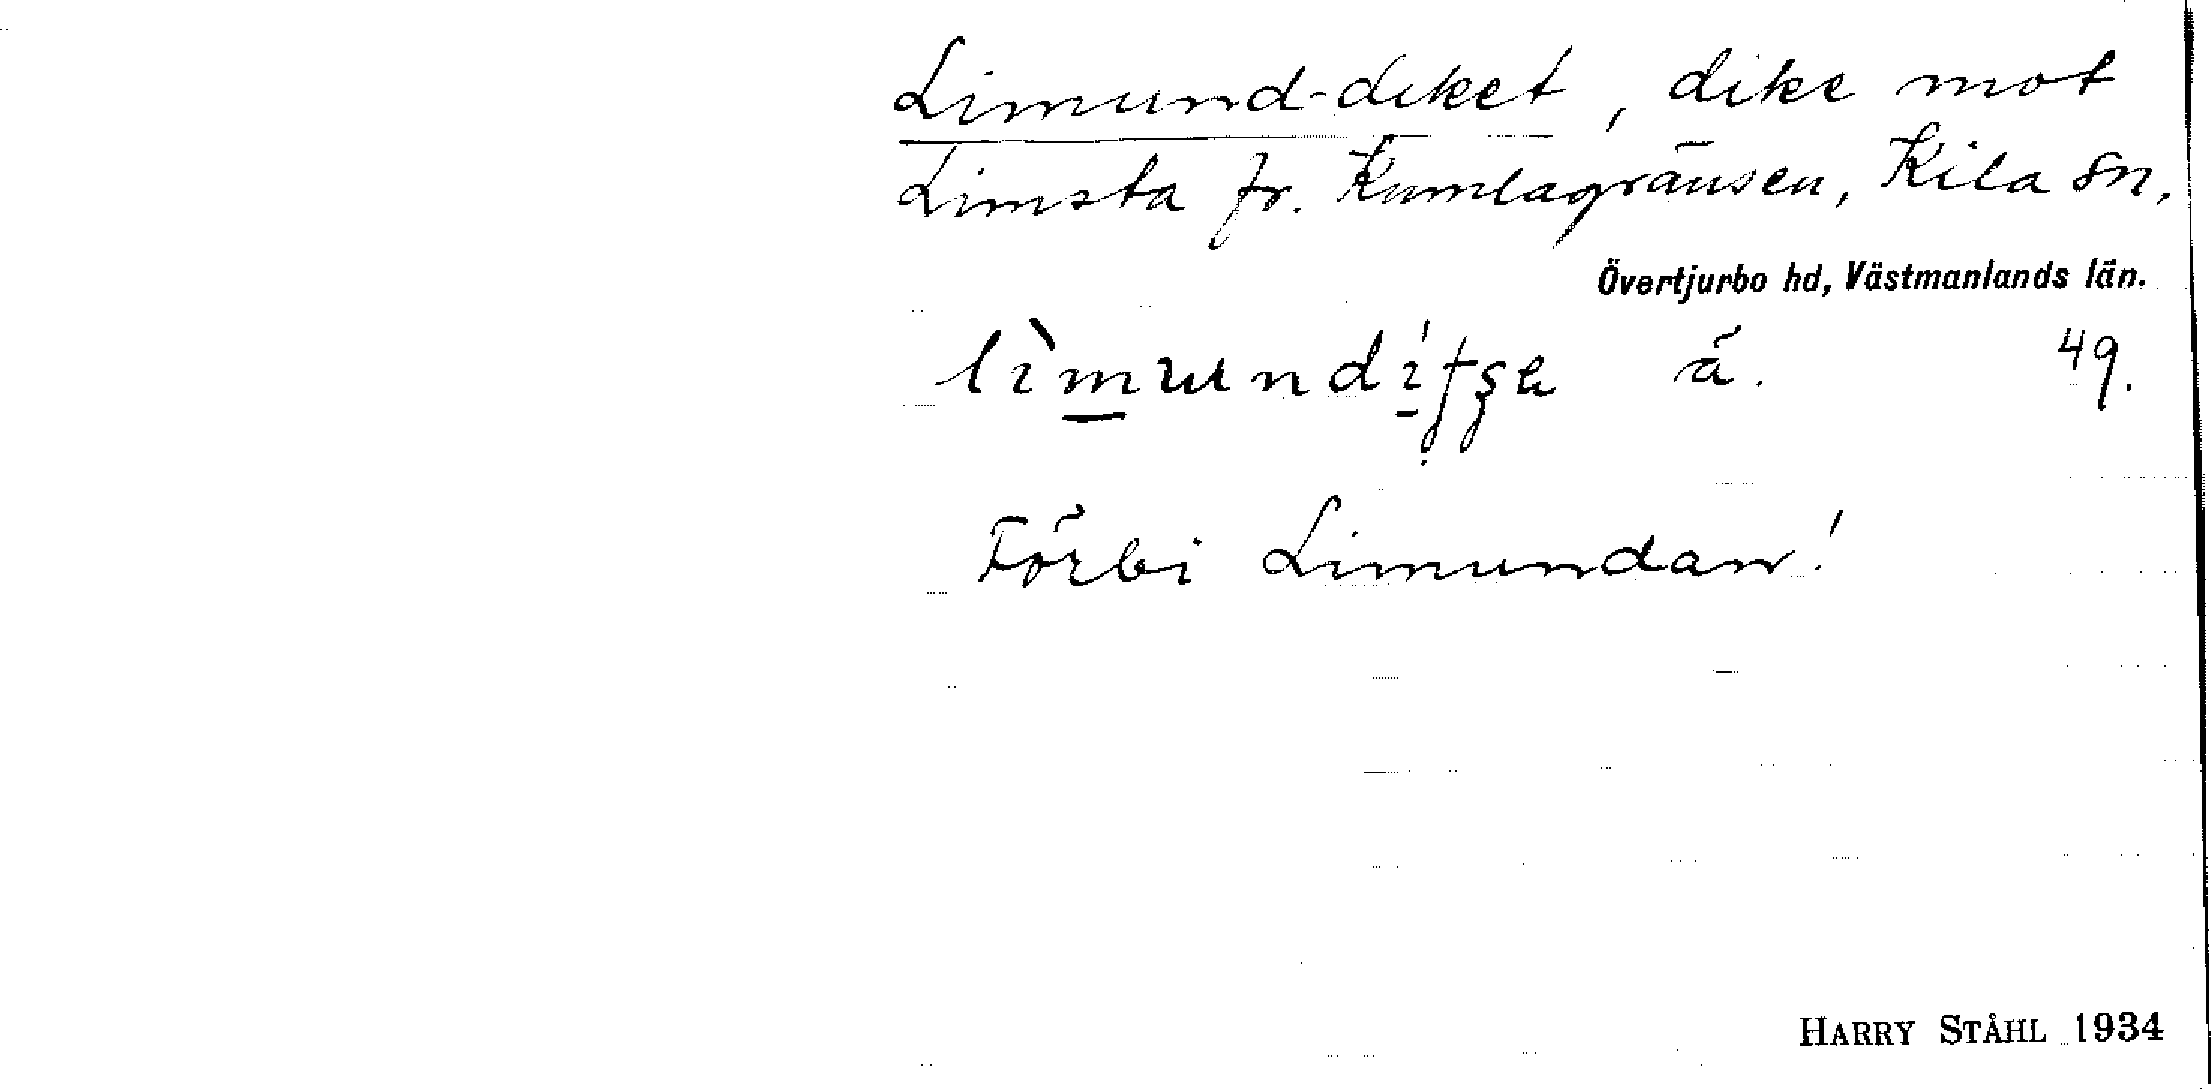 Limund-diket, dike mot
Limsta fr. Kumlagränsen, Kila sn,
Övertjurbo hd, Västmanlands län.
ä. 49.
Förbi Limundan!
HARRY STÅHL 1934